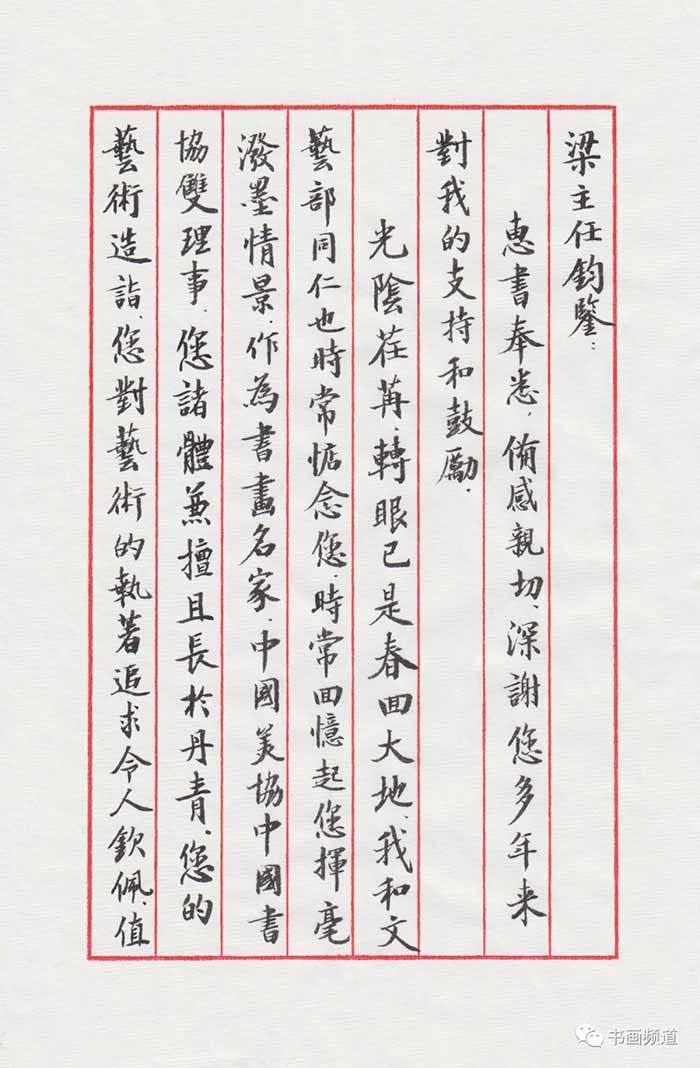 梁主任鈞鑒:
惠書奉悉,備感親切、深謝您多年来
對我的支持和鼓勵.
光陰荏苒、轉眼已是春回大地、我和文
藝部同仁也時常惦念您、時常回憶起您揮毫
潑墨情景.作為書畫名家、中國美協中國書
協雙理事、您諸體兼擅且長於丹青、您的
藝術造詣、您對藝術的執著追求令人欽佩、值
书画频道